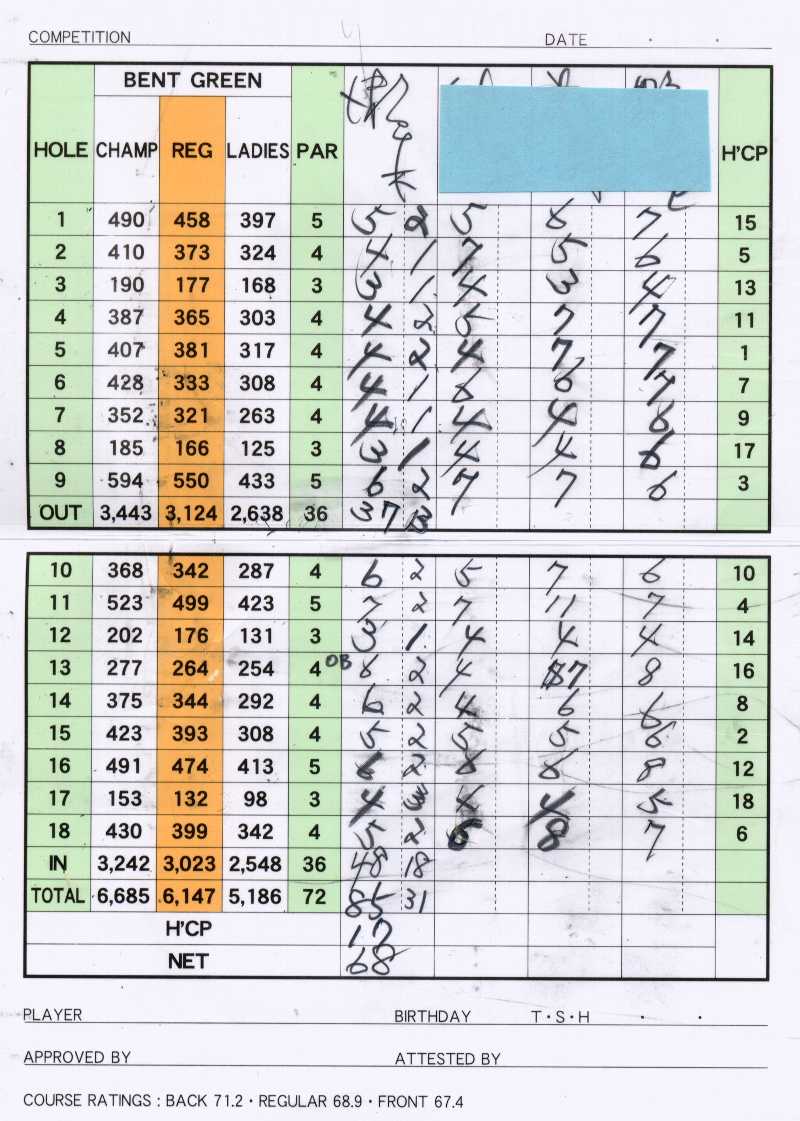 COMPETITION DATE · ·
BENT GREEN
HOLE CHAMP REG LADIES PAR H'CP
1 490 458 397 5 5 2 5 6 7 15
2 410 373 324 4 4 1 7 5 6 5
3 190 177 168 3 3 1 4 3 4 13
4 387 365 303 4 4 2 5 7 7 11
5 407 381 317 4 4 2 4 7 7 1
6 428 333 308 4 4 1 6 6 7 7
7 352 321 263 4 4 1 4 4 8 9
8 185 166 125 3 3 1 4 4 6 17
9 594 550 433 5 6 2 7 7 6 3
OUT 3,443 3,124 2,638 36 37 13
10 368 342 287 4 6 2 5 7 6 10
11 523 499 423 5 7 2 7 11 7 4
12 202 176 131 3 3 1 4 4 4 14
13 277 264 254 4 OB 6 2 4 7 8 16
14 375 344 292 4 6 2 4 6 6 8
15 423 393 308 4 5 2 5 5 6 2
16 491 474 413 5 6 2 8 6 8 12
17 153 132 98 3 4 3 4 4 5 18
18 430 399 342 4 5 2 6 8 7 6
IN 3,242 3,023 2,548 36 48 18
TOTAL 6,685 6,147 5,186 72 85 31
H'CP 17
NET 68
PLAYER BIRTHDAY T·S·H · ·
APPROVED BY ATTESTED BY
COURSE RATINGS : BACK 71.2 · REGULAR 68.9 · FRONT 67.4